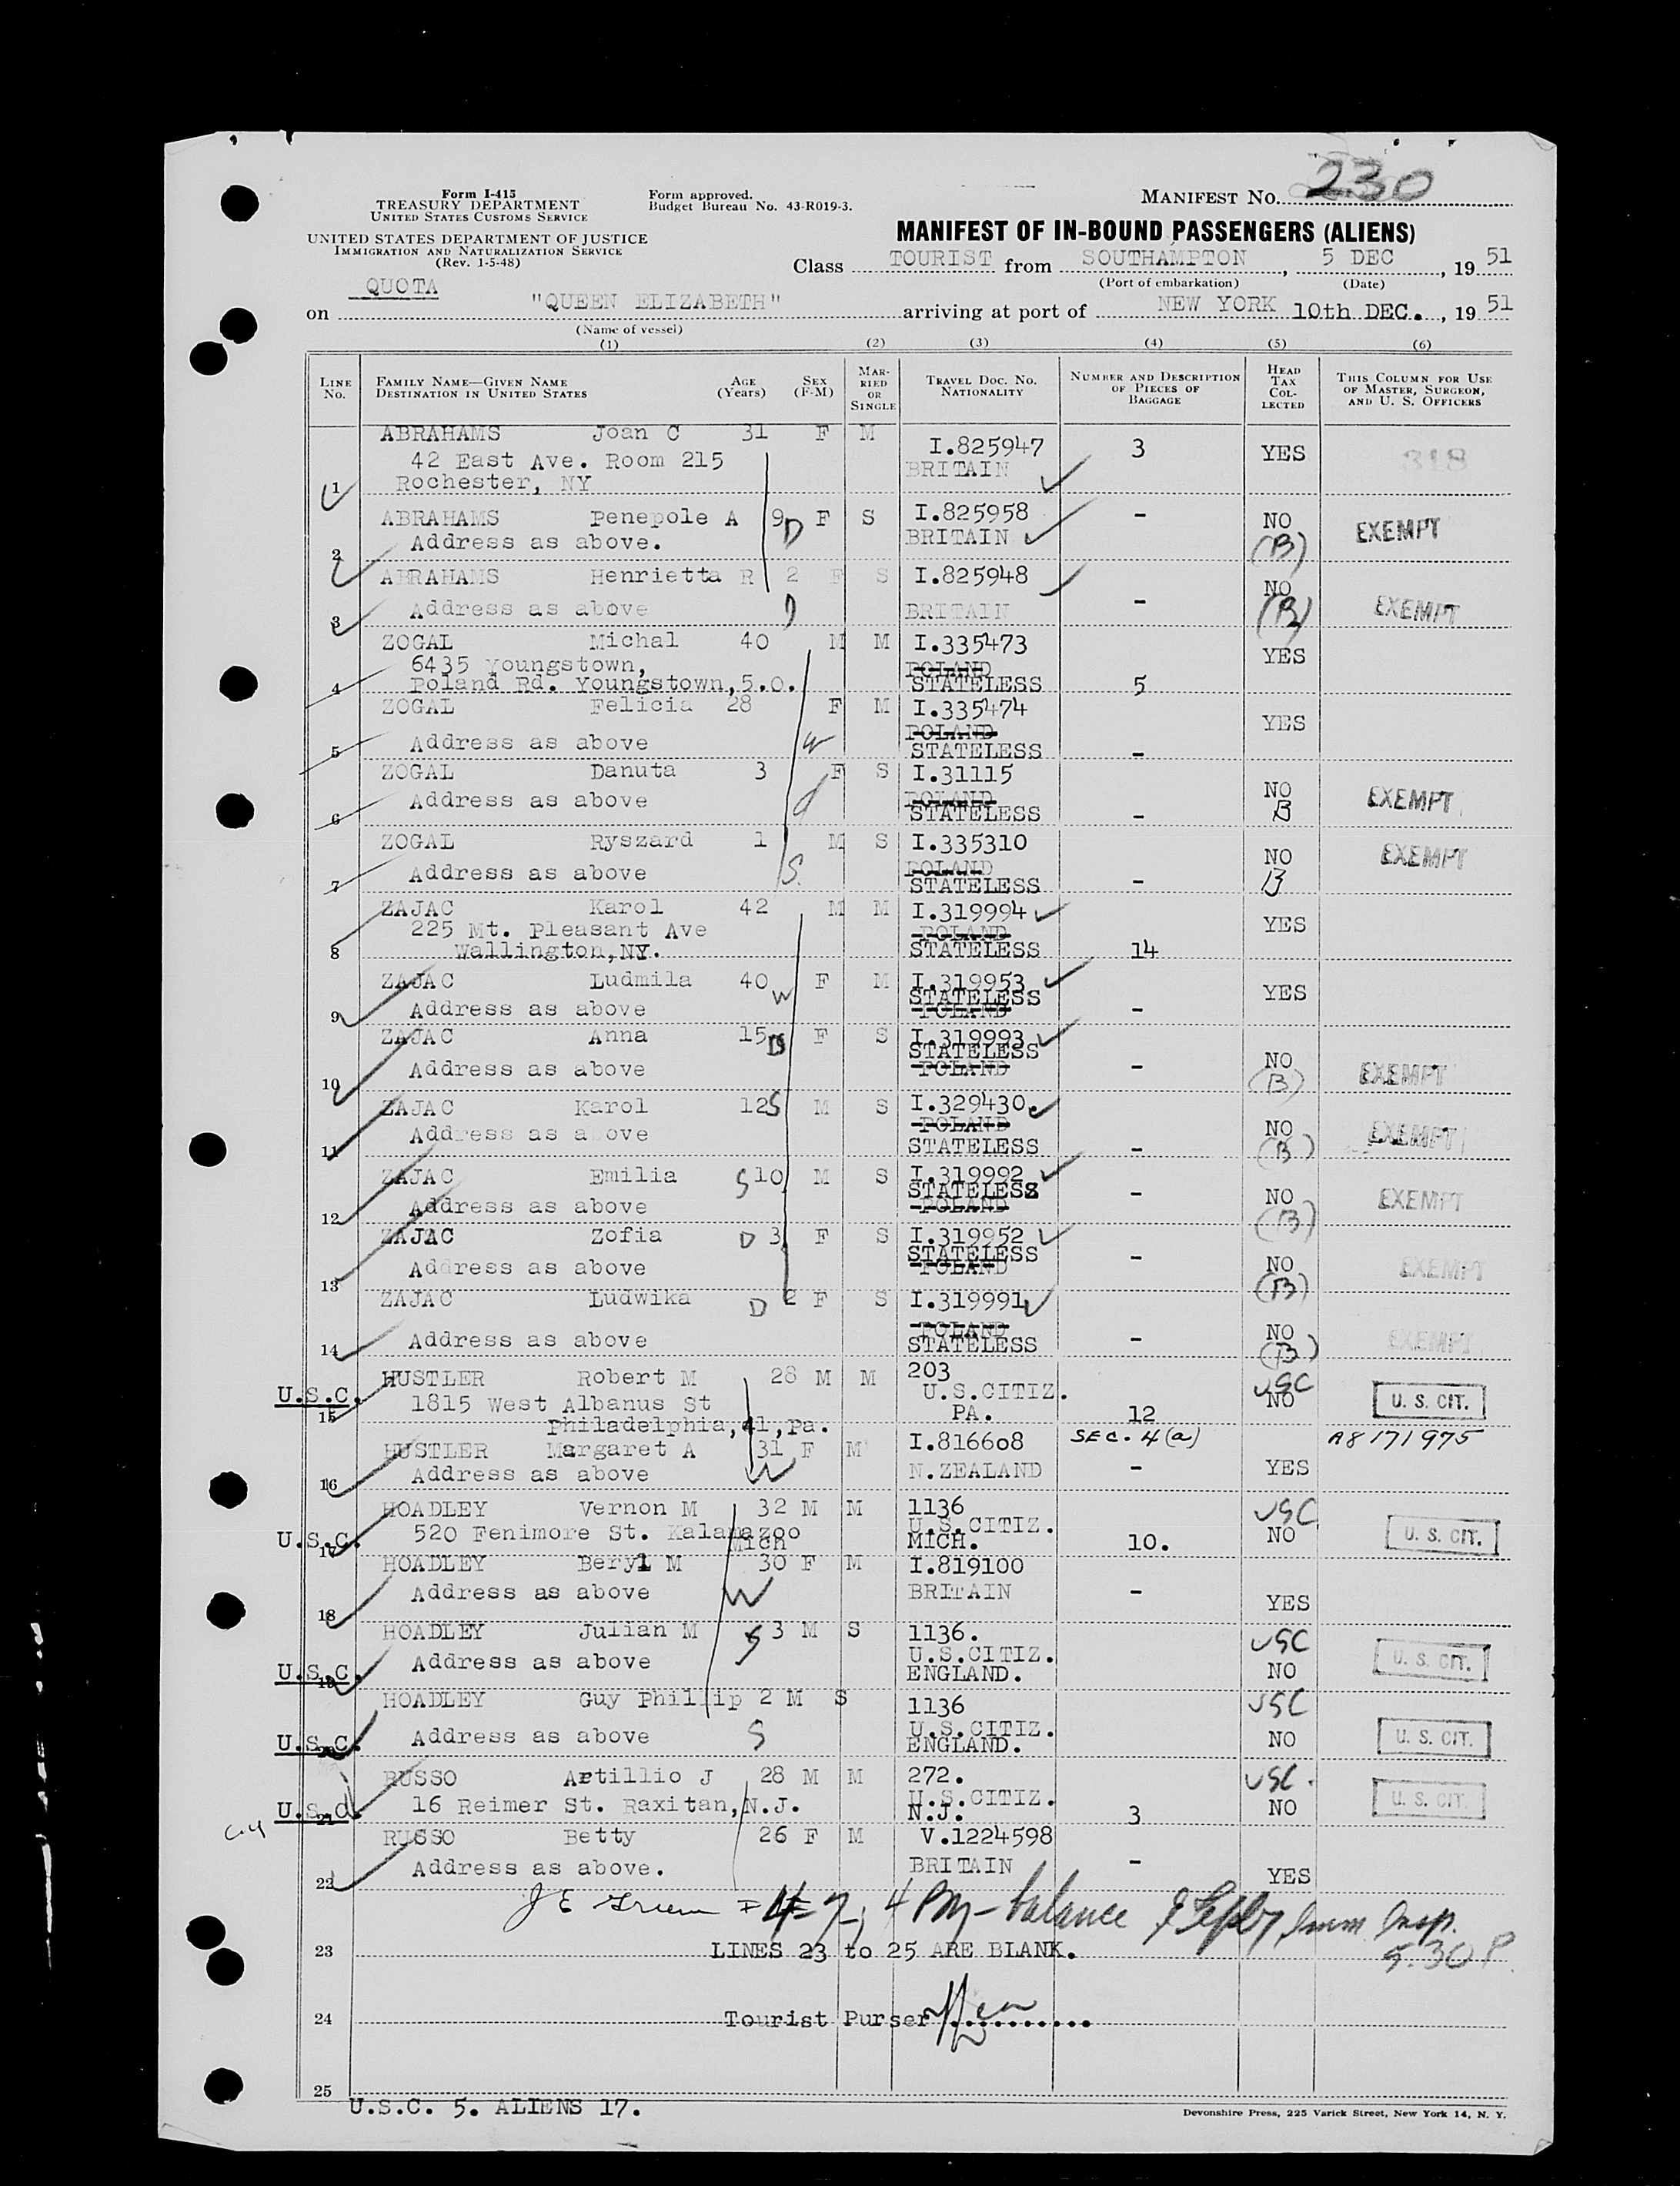 Form I-415
TREASURY DEPARTMENT
UNITED STATES CUSTOMS SERVICE
UNITED STATES DEPARTMENT OF JUSTICE
IMMIGRATION AND NATURALIZATION SERVICE
(Rev. 1-5-48)
Form approved.
Budget Bureau No. 43-R019-3.
MANIFEST No. 230
MANIFEST OF IN-BOUND PASSENGERS (ALIENS)
Class TOURIST from SOUTHAMPTON, 5 DEC, 19 51
(Port of embarkation) (Date)
QUOTA
on "QUEEN ELIZABETH" arriving at port of NEW YORK 10th DEC., 19 51
(Name of vessel)
(1) (2) (3) (4) (5) (6)
LINE No. FAMILY NAME—GIVEN NAME DESTINATION IN UNITED STATES AGE (Years) SEX (F-M) MARRIED OR SINGLE TRAVEL DOC. No. NATIONALITY NUMBER AND DESCRIPTION OF PIECES OF BAGGAGE HEAD TAX COLLECTED THIS COLUMN FOR USE OF MASTER, SURGEON, AND U. S. OFFICERS
ABRAHAMS Joan C 31 F M I.825947 3 YES 318
42 East Ave. Room 215 BRITAIN
1 Rochester, NY
ABRAHAMS Penepole A 9 D F S I.825958 - NO EXEMPT
2 Address as above. BRITAIN (B)
ABRAHAMS Henrietta R 2 F S I.825948 NO
3 Address as above D BRITAIN - (B) EXEMPT
ZOGAL Michal 40 M M I.335473 YES
6435 Youngstown, POLAND
4 Poland Rd. Youngstown,5.O. STATELESS 5
ZOGAL Felicia 28 F M I.335474 YES
POLAND
5 Address as above W STATELESS -
ZOGAL Danuta 3 F S I.31115 NO EXEMPT
Address as above d POLAND B
6 STATELESS -
ZOGAL Ryszard 1 M S I.335310 NO EXEMPT
Address as above S. POLAND B
7 STATELESS -
ZAJAC Karol 42 M M I.319994 YES
225 Mt. Pleasant Ave POLAND
8 Wallington,NY. STATELESS 14
ZAJAC Ludmila 40 W F M I.319953 YES
STATELESS
9 Address as above POLAND -
ZAJAC Anna 15 D F S I.319993 NO
STATELESS
10 Address as above POLAND - (B) EXEMPT
ZAJAC Karol 12 S M S I.329430. NO EXEMPT
Address as above POLAND
11 STATELESS - (B)
ZAJAC Emilia S 10 M S I.319992 NO EXEMPT
STATELESS -
12 Address as above POLAND (B)
ZAJAC Zofia D 3 F S I.319952 NO EXEMPT
STATELESS -
13 Address as above POLAND (B)
ZAJAC Ludwika D 2 F S I.319991 NO EXEMPT
POLAND
14 Address as above STATELESS - (B)
HUSTLER Robert M 28 M M 203 USC
U.S.C. 1815 West Albanus St U.S.CITIZ. NO U. S. CIT.
15 Philadelphia,41,Pa. PA. 12
HUSTLER Margaret A 31 F M I.816608 SEC. 4(a) A8171975
16 Address as above W N.ZEALAND - YES
HOADLEY Vernon M 32 M M 1136 USC
U.S.C. 520 Fenimore St. Kalamazoo U.S.CITIZ. NO U. S. CIT.
17 Mich MICH. 10.
HOADLEY Beryl M 30 F M I.819100
Address as above W BRITAIN - YES
18
HOADLEY Julian M S 3 M S 1136. USC
Address as above U.S.CITIZ. U. S. CIT.
U.S.C. 19 ENGLAND. NO
HOADLEY Guy Phillip 2 M S 1136 USC
Address as above S U.S.CITIZ. NO U. S. CIT.
U.S.C. 20 ENGLAND.
RUSSO Artillio J 28 M M 272. USC.
16 Reimer St. Raxitan,N.J. U.S.CITIZ. NO U. S. CIT.
U.S.C. 21 N.J. 3
RUSSO Betty 26 F M V.1224598
Address as above. BRITAIN - YES
22
J E Green 4-7, 4 Pm - balance Imm. Insp.
5.30 P.
23 LINES 23 to 25 ARE BLANK.
24 Tourist Purser
25
U.S.C. 5. ALIENS 17.
Devonshire Press, 225 Varick Street, New York 14, N. Y.